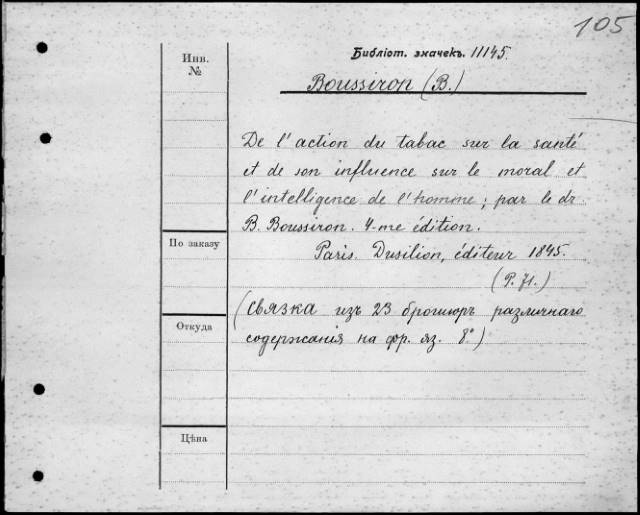 105
Библіот. значекъ. 11145.
Инв. №
Boussiron (B.)
De l'action du tabac sur la santé
et de son influence sur le moral et
l'intelligence de l'homme; par le dr.
B. Boussiron. 4-me édition.
По заказу
Paris. Dusilion, éditeur 1845.
(P. 71.)
(Связка изъ 23 брошюръ различнаго
Откуда
содержанія на фр. яз. 8°.)
Цѣна